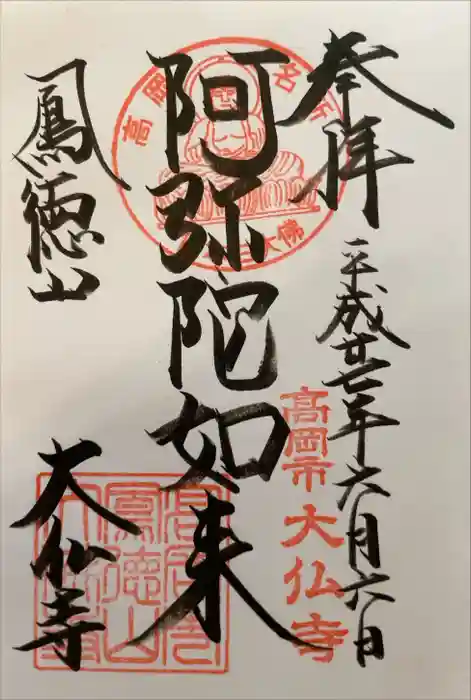 奉拝
平成廿七年六月六日
高岡市
大仏寺
高岡名所
大佛
阿弥陀如来
鳳徳山
大仏寺